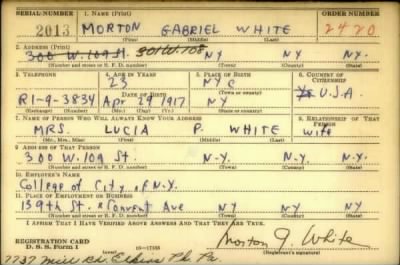 SERIAL NUMBER 1. NAME (Print) ORDER NUMBER
2013 MORTON GABRIEL WHITE 2420
(First) (Middle) (Last)
2. ADDRESS (Print) 301 W. 108
300 W. 109 St. NY NY NY
(Number and street or R. F. D. number) (Town) (County) (State)
3. TELEPHONE 4. AGE IN YEARS 5. PLACE OF BIRTH 6. COUNTRY OF CITIZENSHIP
23 NYC
DATE OF BIRTH (Town or county) U.S.A.
RI-9-3834 Apr 29 1917 NY
(Exchange) (Number) (Mo.) (Day) (Yr.) (State or country)
7. NAME OF PERSON WHO WILL ALWAYS KNOW YOUR ADDRESS 8. RELATIONSHIP OF THAT PERSON
MRS. LUCIA P. WHITE wife
(Mr., Mrs., Miss) (First) (Middle) (Last)
9. ADDRESS OF THAT PERSON
300 W. 109 St. N.Y. N.Y. N.Y.
(Number and street or R. F. D. number) (Town) (County) (State)
10. EMPLOYER'S NAME
College of City of N.Y.
11. PLACE OF EMPLOYMENT OR BUSINESS
139th St. & Convent Ave NY NY NY
(Number and street or R. F. D. number) (Town) (County) (State)
I AFFIRM THAT I HAVE VERIFIED ABOVE ANSWERS AND THAT THEY ARE TRUE.
REGISTRATION CARD
D. S. S. Form 1 16-17105 Morton G. White
(Registrant's signature)
7737 Mill Rd. Elkins Pk. Pa.